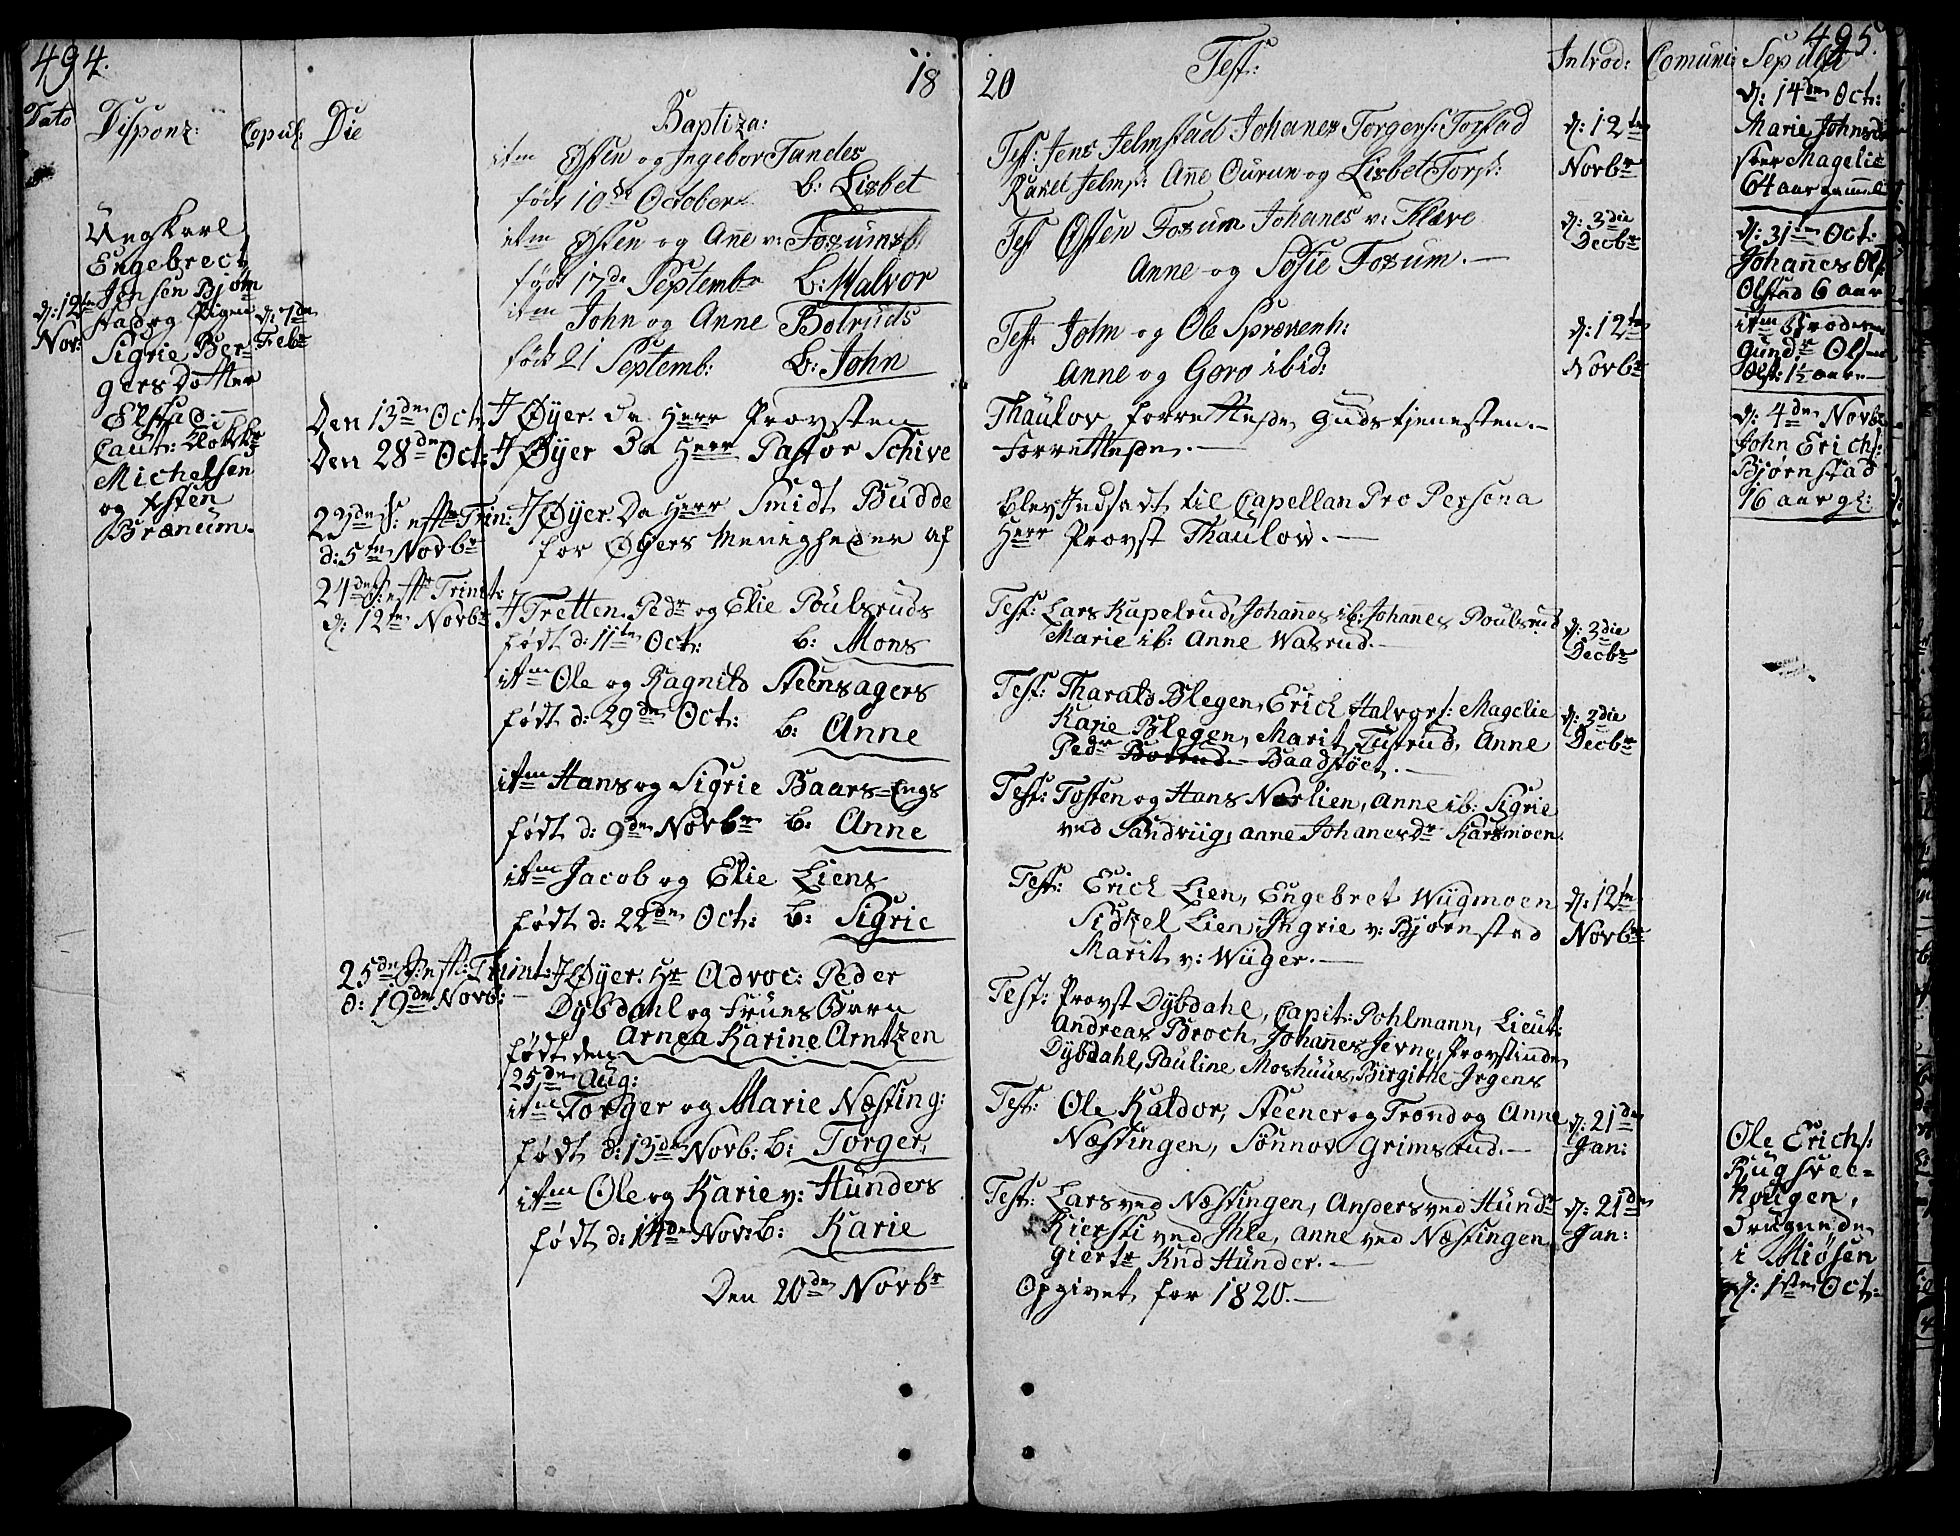 494.
18
Dato
Disponz:
Copul:
Die
Baptiza:
d: 12te
Nov:
Ungkarl
Engebrect
Jensen Bjøm
stad og Pigen
Sigrie Ber-
gersdotter
Elstad.
Caut: Klokk:
Michelsen
og Østen
Brænum.
d: 7de
Febr
itm Østen og Ingebor Tandes
født 10de October b: Lisbet
itm Østen og Anne v: Fosums b.
født 17de Septembr b: Halvor
itm John og Anne Botruds
født 21 Septemb: b: John
Den 13de Oct: I Øyer. da Herr Provsten
Den 28de Oct: I Øyer Da Herr Pastor Schive
23de S: efftr Trin: I Øyer. Da Herr Smidt Budde
d: 5te Novbr for Øyers Menigheder af
24de S: efft Trinit:
d: 12te Novbr I Tretten. Pedr og Elie Poulsruds
født d: 11te Oct: b: Mons
itm Ole og Ragnild Steensagers
født d: 29de Oct: b: Anne
itm Hans og Sigrie Baars-Engs
født d: 9de Novbr b: Anne
itm Jacob og Elie Liens
født d: 22de Oct: b: Sigrie
25de S: efft: Trinit: I Øyer. Hr Advoc: Peder
d: 19de Novb: Dybdahl og Frues Barn
født den Arnea Karine Arntzen
25de Aug:
itm Torger og Marie Næsting:
født d: 13de Novb: b: Torger
itm Ole og Karie v: Hunders
født d: 14de Nov: b: Karie
Den 20de Novbr
495.
20
Test:
Introd:
Comuni:
Sepult
Test: Jens Jelmstad Johanes Torgers: Torstad
Karel Jelmst: Anne Ourun og Lisbet Torst:
d: 12te
Novbr
Test Østen Fosum Johanes v: Klæve
Anne og Sofie Fosum.
d: 3die
Decbr
Test John og Ole Sprævenh:
Anne og Goro ibid:
d: 12te
Novbr
Thaulov forrettede Gudstjenesten.
Forrettede.
blev Indsadt til Capellan Pro Persona
Herr Provst Thaulow.
Test: Lars Kapelrud, Johannes ib: Johannes Poulsrud
Marie ib: Anne Wasrud.
d: 3die
Decbr
Test: Tharald Blegen, Erich Halvors: Magelie
Karie Blegen, Marit Tustrud, Anne
Pedr Botrud. Baadstøet.
d: 3die
Decbr
Test: Tosten og Hans Nærlien, Anne ib: Sigrie
ved Sandviig, Anne Johanesdr Karsmoen.
Test: Erich Lien, Engebret Wügmoen
Sidzel Lien, Ingrie v: Bjørnsted
Marit v: Wüger.
d: 12te
Novbr
Test: Provst Dybdahl, Capit: Pohlmann, Lieut:
Andreas Broch, Johannes Jevne, Provstinde
Dybdahl, Pauline Moshuus, Birgithe Irgens
Test: Ole Kaldor, Steener og Trond og Anne
Næstingen, Sønnov Grimsrud.
d: 21de
Jan:
Test: Lars ved Næstingen, Anders ved Hundr
Kiersti ved Ihle, Anne ved Næstingen
giertr Knd Hunder.
d: 21de
Jan:
Opgivet for 1820.
d: 14de Oct:
Marie Johnsd
ster Magelie
64 aar gammel
d: 31te Oct:
Johannes Ols:
Olstad 6 aar
itm Broderen
Gundr Olsen
Olst: 1½ aar
d: 4de Novbr
John Erichs:
Bjørnstad
76 aar gl:
Ole Erichs:
Rugsvee-
hougen,
Drugnede
i Miøsen
d: 1ste Oct: